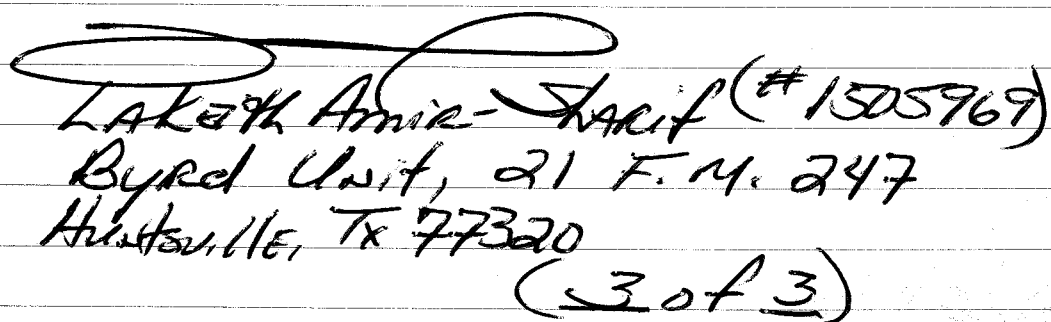 LAKeith Amir-Sharif (#1505969)
Byrd Unit, 21 F.M. 247
Huntsville, Tx 77320
(3 of 3)